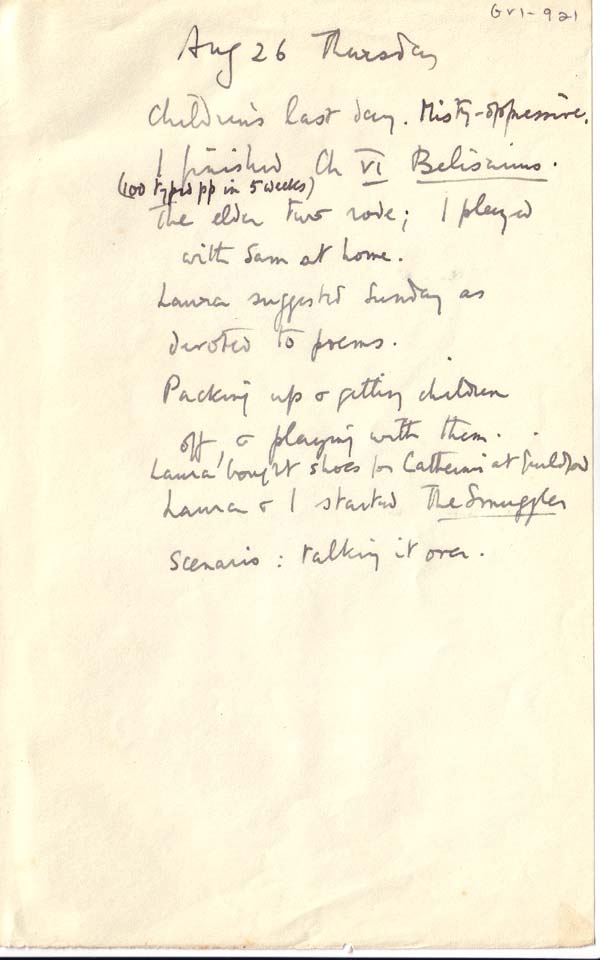 GV1-921
Aug 26 Thursday
Children's last day. Misty-oppressive.
I finished Ch VI Belisarius.
(100 typed pp in 5 weeks)
The elder two rode; I played
with Sam at home.
Laura suggested Sunday as
devoted to poems.
Packing up & getting children
off, & playing with them.
Laura bought shoes for Catherine at Guildford
Laura & I started The Smuggler
Scenario: talking it over.